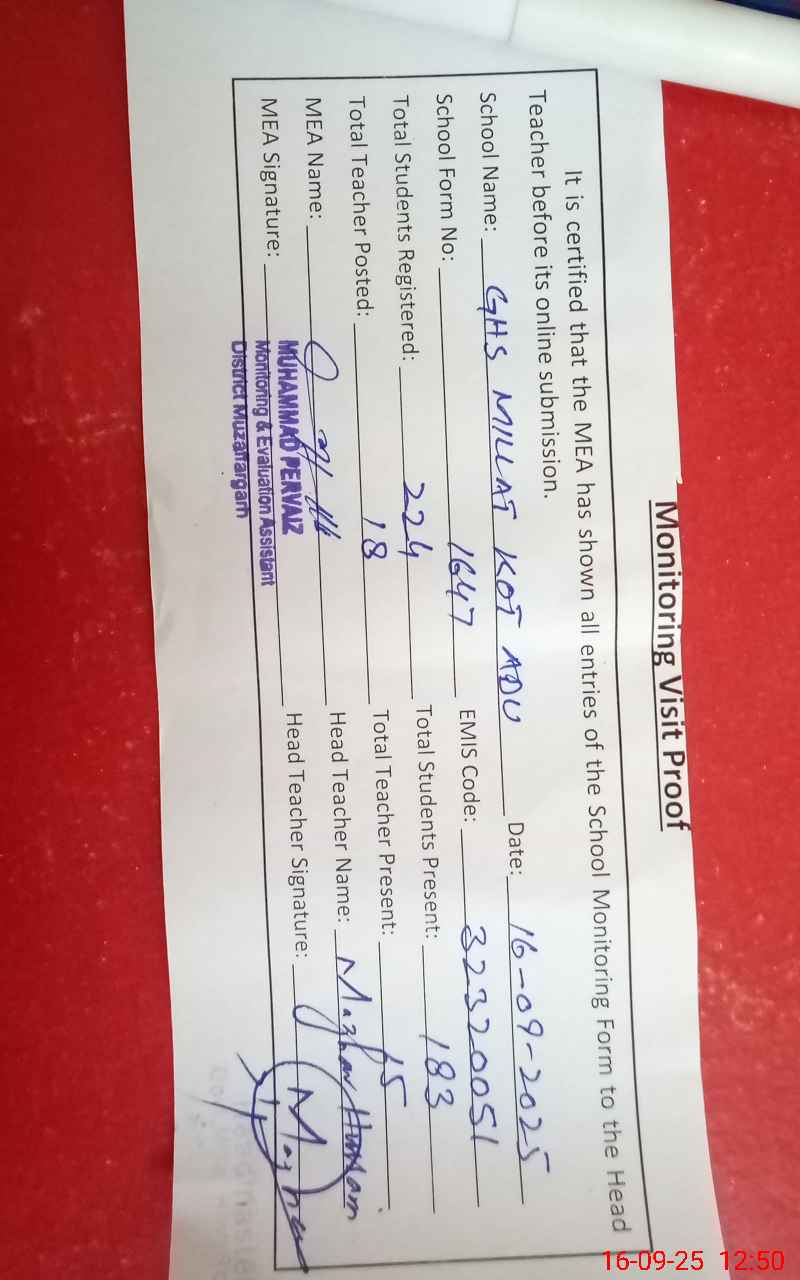 Monitoring Visit Proof
It is certified that the MEA has shown all entries of the School Monitoring Form to the Head
Teacher before its online submission.
School Name: GHS MILLAT KOT ADU Date: 16-09-2025
School Form No: 1647 EMIS Code: 32320051
Total Students Registered: 224 Total Students Present: 183
Total Teacher Posted: 18 Total Teacher Present: 15
MEA Name: Head Teacher Name: Mazhar Hussain
MEA Signature: Head Teacher Signature: Mazhar
MUHAMMAD PERVAIZ
Monitoring & Evaluation Assistant
District Muzaffargarh
16-09-25 12:50